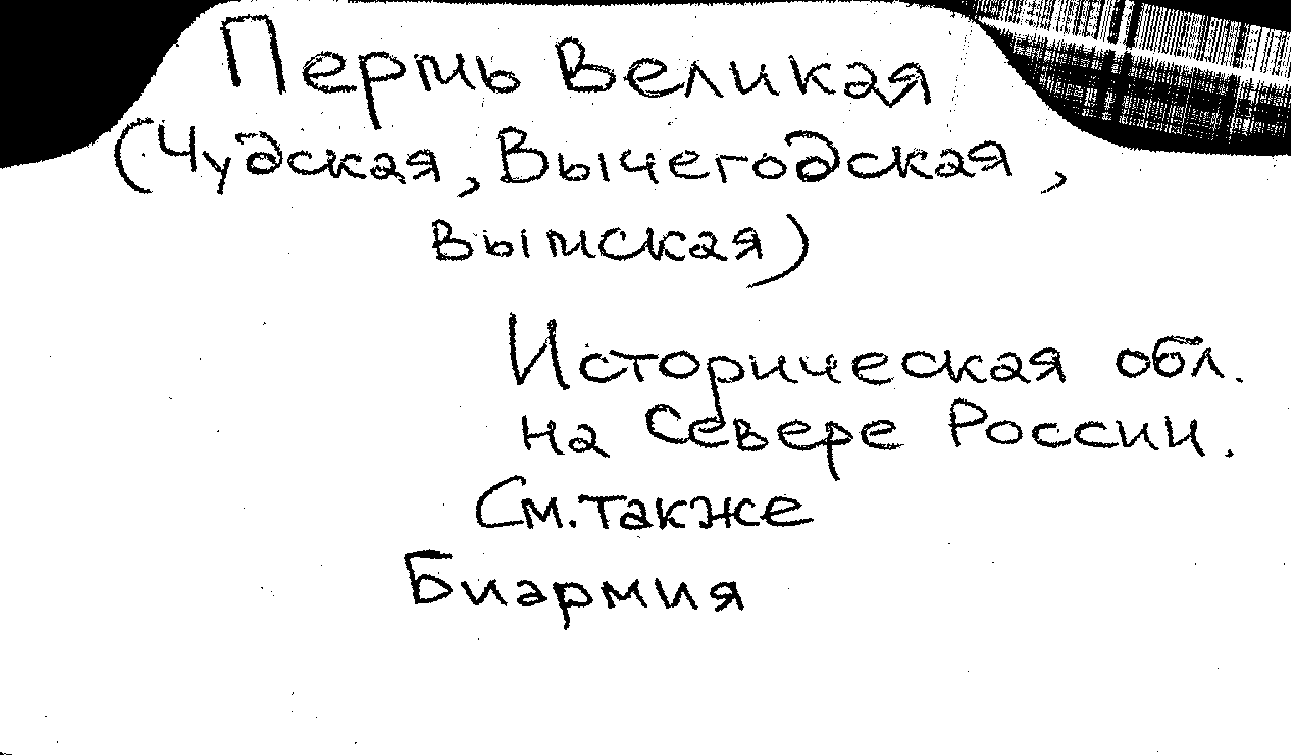 Пермь Великая
(Чудская, Вычегодская,
Вымская)
Историческая обл.
на Севере России.
См. также
Биармия